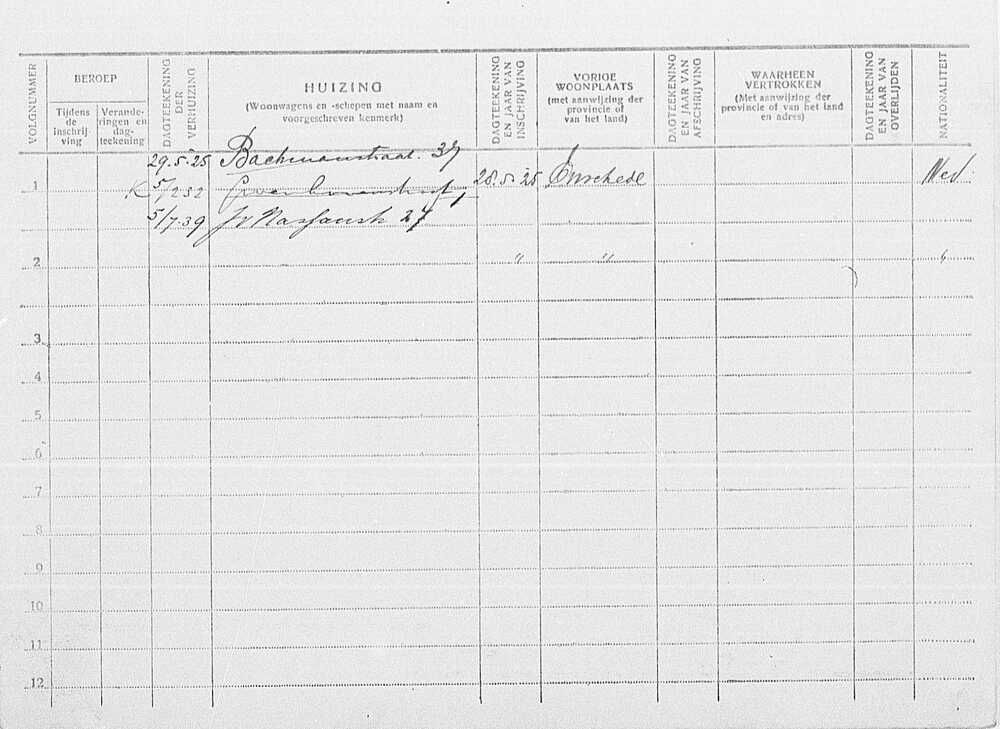 VOLGNUMMER
BEROEP
Tijdens de inschrij-ving
Verande-ringen en dag-teekening
DAGTEEKENING DER VERHUIZING
HUIZING
(Woonwagens en -schepen met naam en
voorgeschreven kenmerk)
DAGTEEKENING EN JAAR VAN INSCHRIJVING
VORIGE
WOONPLAATS
(met aanwijzing der
provincie of
van het land)
DAGTEEKENING EN JAAR VAN AFSCHRIJVING
WAARHEEN
VERTROKKEN
(Met aanwijzing der
provincie of van het land
en adres)
DAGTEEKENING EN JAAR VAN OVERLIJDEN
NATIONALITEIT
29.5.25 Bachmanstraat. 37
1 28.5.25 Enschede Ned.
K 5/2 32
5/7.39 Jv Nassaustr 27
2 " " "
3
4
5
6
7
8
9
10
11
12